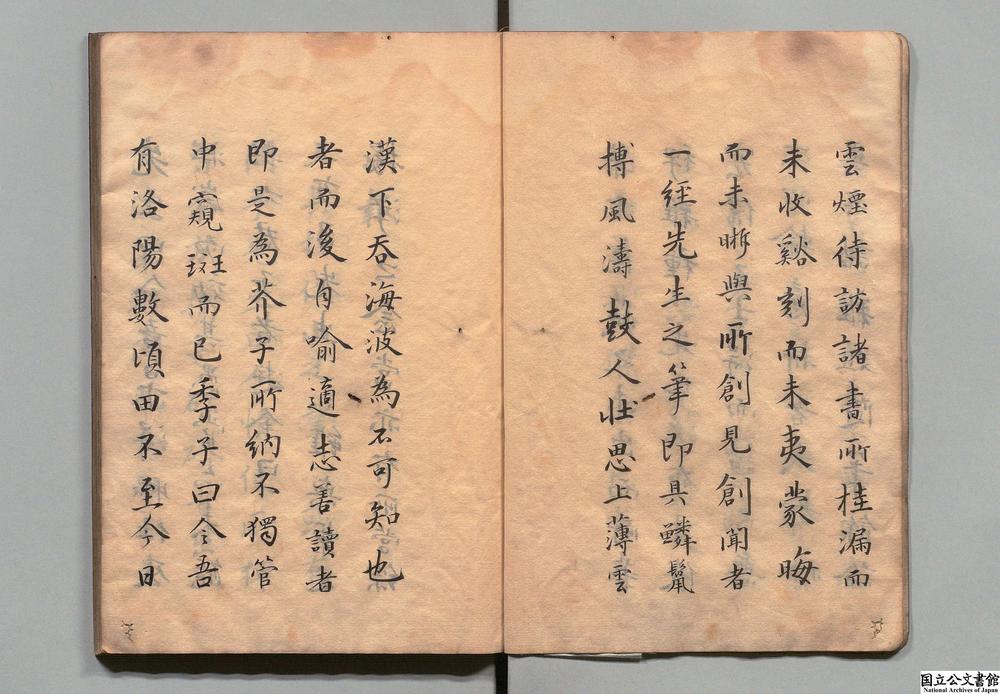 雲煙待訪諸書所挂漏而
未收谿刻而未夷蒙晦
而未晰與生所創見創聞者
一經先生之筆即具鱗鬣
搏風濤鼓人壯思上薄雲
漢下吞海波為不可知也
者而後自喻適志善讀者
即是為芥子所納不獨管
中窺斑而已季子曰令吾
有洛陽數頃田不至今日
国立公文書館
National Archives of Japan